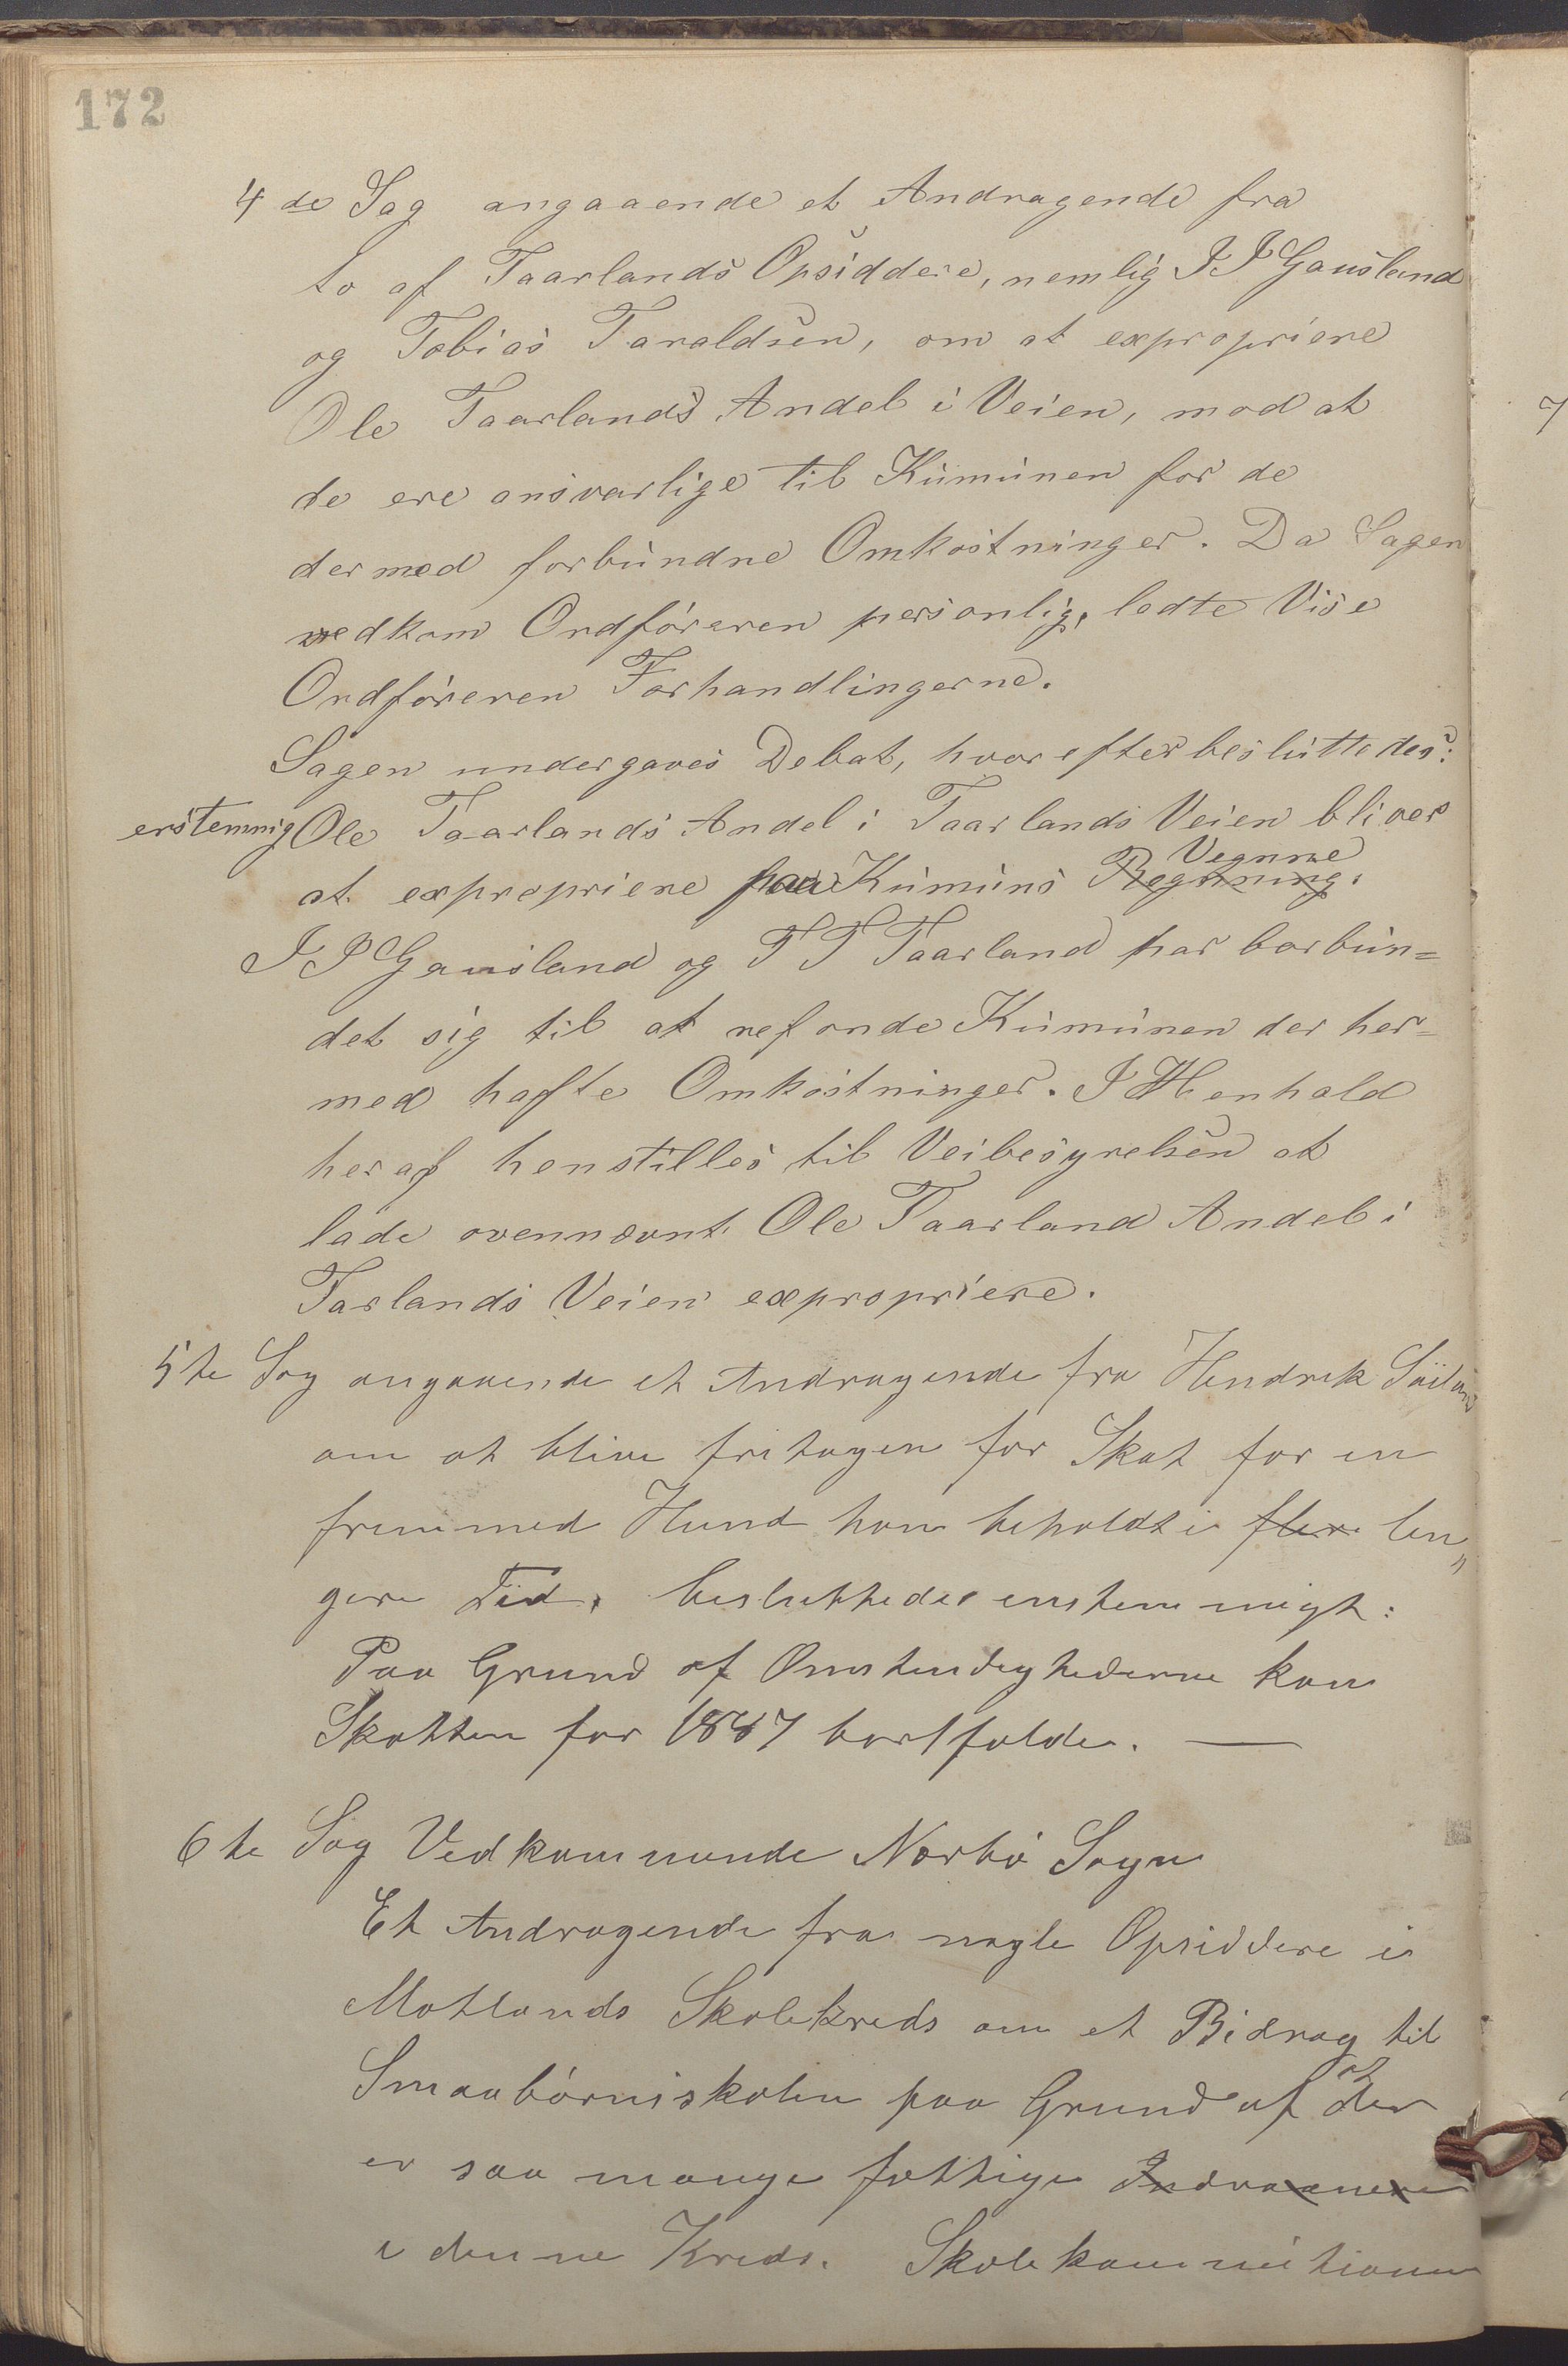 172
4 de Sag angaaende et Andragende fra
to af Taarlands Opsiddere, nemlig I I Gausland
og Tobias Taraldsen, om at expropriere
Ole Taarlands Andel i Veien, mod at
de ere ansvarlige til Kumunen for de
dermed forbundne Omkostninger. Da Sagen
vedkom Ordföreren personlig, ledte Vise
Ordföreren Forhandlingerne.
Sagen undergaves Debat, hvorefter besluttedes:
enstemmig Ole Taarlands Andel i Taarlands Veien bliver
Vegnne
at expropriere paa Kumuns Regnning.
I I Gausland og T T Taarland har borbun=
det sig til at refonde Kumunen der her=
med hafte Omkostninger. I Henhold
heraf henstilles til Veibesyrelsen at
lade ovennævnt Ole Taarland Andel i
Tarlands Veien expropriere.
5 te Sag angaaende et Andragende fra Hendrik
om at blive fritagen for Skat for en
fremmed Hund han beholdt i flere len„
gere Tid, besluttedes enstemmigt:
Paa Grund af Omstendighederne kan
Skatten for 1887 bortfalde. —
6 te Sag Vedkommende Nærbö Sogn
Et Andragende fra nogle Opsiddere i
Motlands Skolekreds om et Bidrag til
at
Smaabörnsskolen paa Grund af der
er saa mange fattige
i denne Kreds. Skolekommitionen